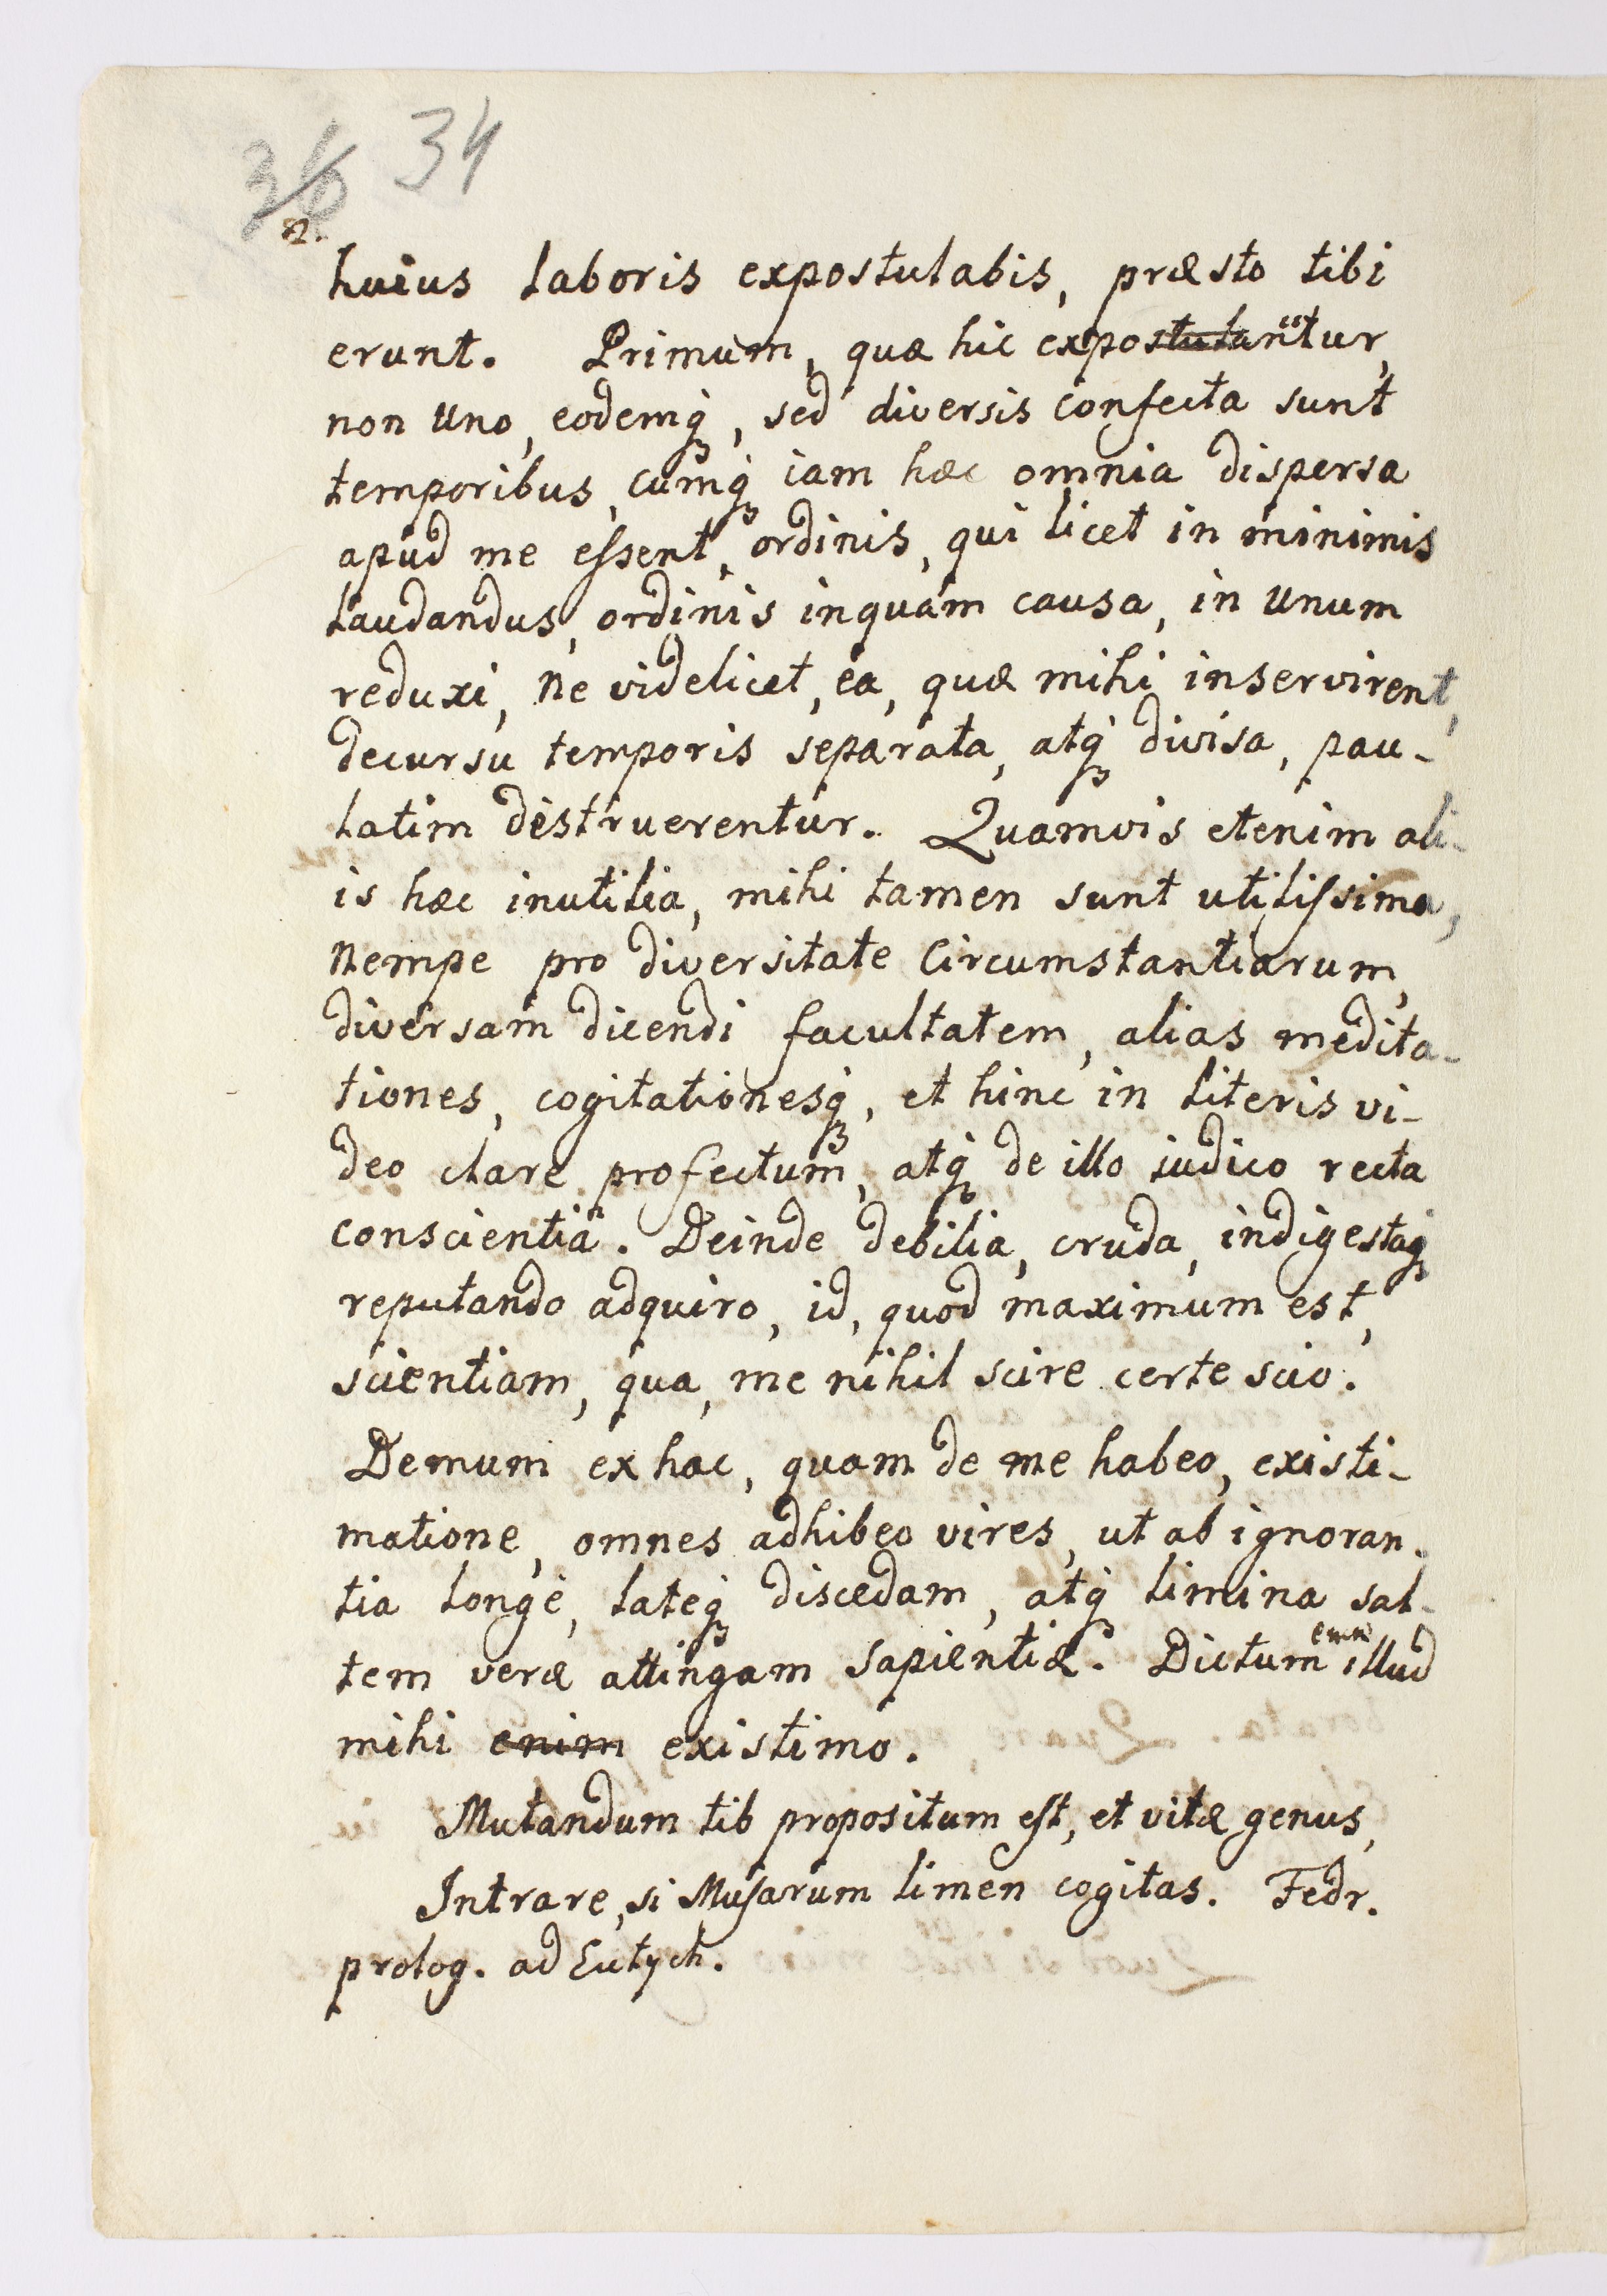 36 34
2.
huius laboris expostulabis, præsto tibi
erunt. Primum, quæ hic expostulantur,
non uno, eodemq́ꝫ, sed diversis confecta sunt
temporibus, cumq́ꝫ iam hæc omnia dispersa
apud me eſsent, ordinis, qui licet in minimis
laudandus, ordinis inquam causa, in unum
reduxi, ne videlicet, ea, quæ mihi inservirent,
decursu temporis separata, atq́ꝫ divisa, pau-
latim destruerentur. Quamvis etenim ali-
is hæc inutilia, mihi tamen sunt utiliſsima,
nempe pro diversitate Circumstantiarum,
diversam dicendi facultatem, alias medita-
tiones, cogitationesq́ꝫ, et hinc in literis vi-
deo clare profectum, atq́ꝫ de illo iudico recta
conscientiâ. Deinde debilia, cruda, indigestaq́ꝫ
reputando adquiro, id, quod maximum est,
scientiam, qua, me nihil scire certe scio.
Demum ex hac, quam de me habeo, existi-
matione, omnes adhibeo vires, ut ab ignoran-
tia longè, lateq́ꝫ discedam, atq́ꝫ limina sal-
tem veræ attingam sapientiæ. Dictum enim illud
mihi enim existimo.
Mutandum tib propositum eſt, et vitæ genus,
Intrare, si Muſarum limen cogitas. Fedr.
prolog. ad Eutych.